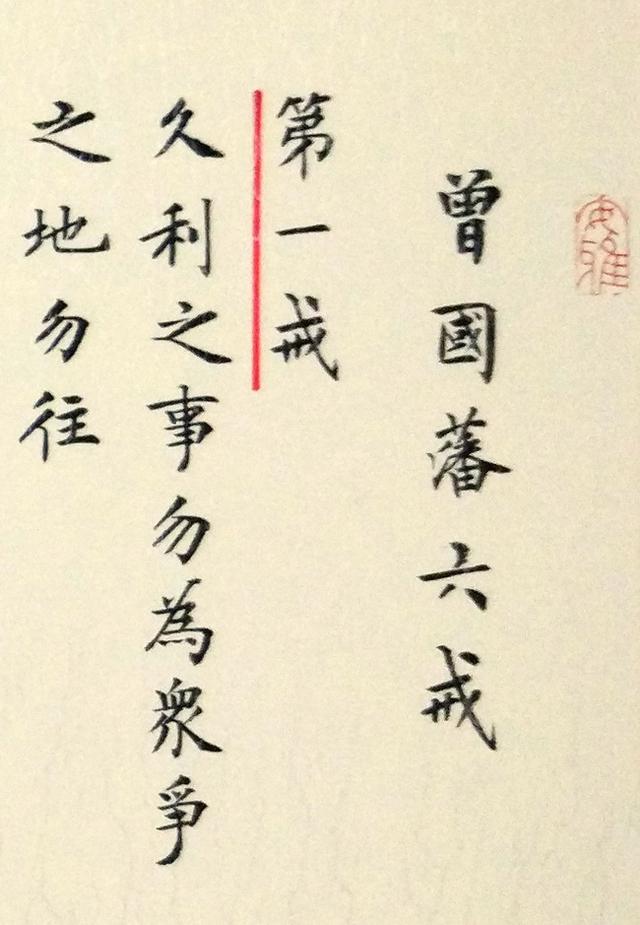 安雅
曾國藩六戒
第一戒
久利之事勿為眾爭
之地勿往